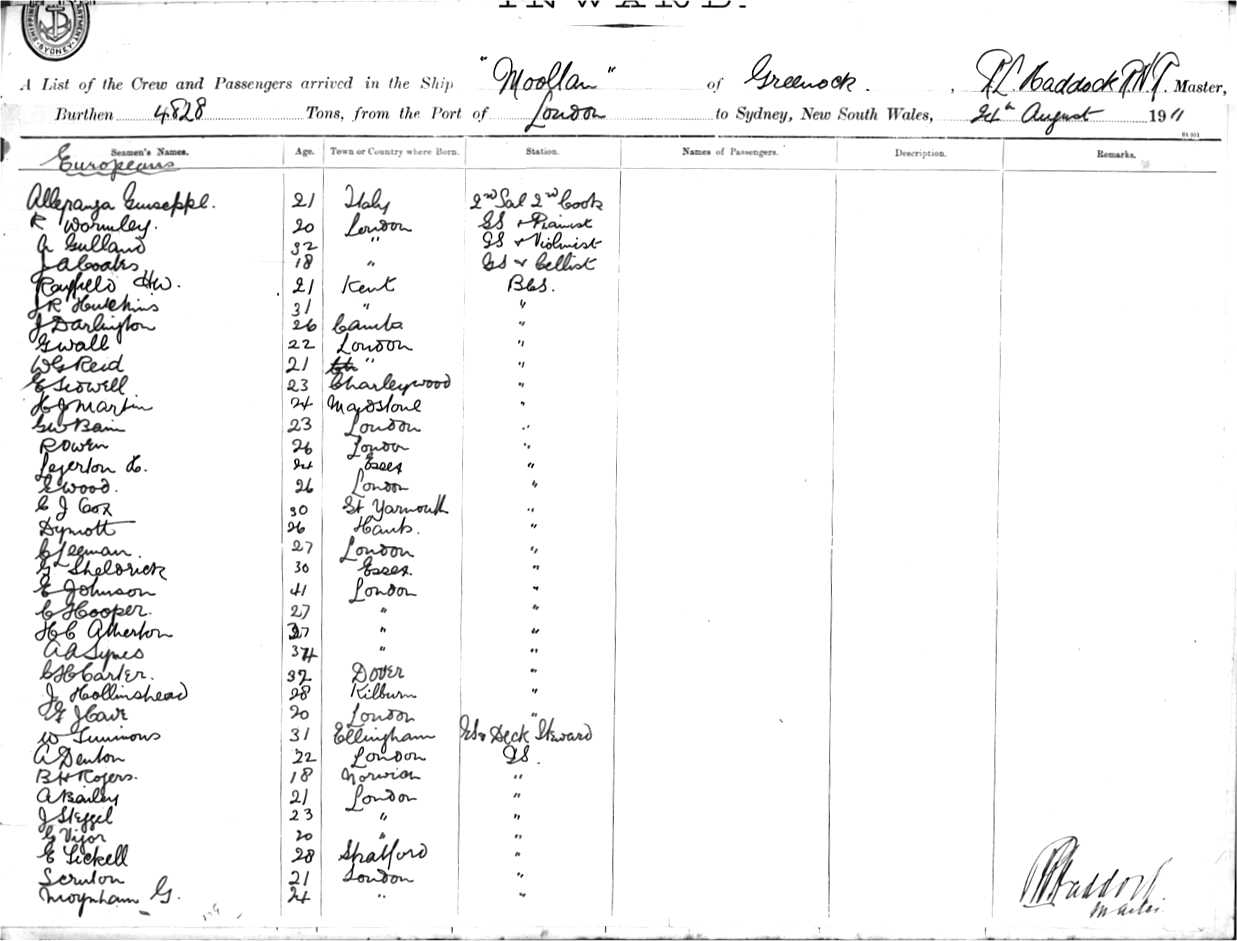 INWARD.
SYDNEY
A List of the Crew and Passengers arrived in the Ship "Mooltan" of Greenock. , Master,
Burthen 4828 Tons, from the Port of London to Sydney, New South Wales, 24th August 1911
Seamen's Names. Age. Town or Country where Born. Station. Names of Passengers. Description. Remarks.
Europeans
Guiseppe. 21 Italy 2nd Sal 2nd Cook
R Wormley. 20 London GS & Pianist
A Gulland 32 " GS & Violinist
J A Coates 18 " GS & Cellist
Rayfield HW. 21 Kent B&S.
J R Hutchins 31 " "
J Darlington 26 Cambs "
G Wall 22 London "
W G Reid 21 " "
E Sidwell 23 Charleywood "
H J Martin 24 Maidstone "
G W Bain 23 London "
R Owen 26 London "
Legerton L. 24 Essex "
E Wood. 26 London "
C J Cox 30 Gt Yarmouth "
Dymott 26 Hants. "
C Leeman. 27 London "
G Sheldrick 30 Essex "
E Johnson 41 London "
C Hooper. 27 " "
H C Atherton 27 " "
A A Symes 34 " "
C H Carter. 32 Dover "
J Hollinshead 28 Kilburn "
J Cave 20 London "
W Simmons 31 Ellingham GS & Deck Steward
A Denton 22 London GS.
B H Rogers. 18 Norwich "
A Bailey 21 London "
J Steggel 23 " "
G Vijor 20 " "
E Tickell 28 Stratford "
Scruton 21 London "
Moynham G. 24 " "
Haddock
Master